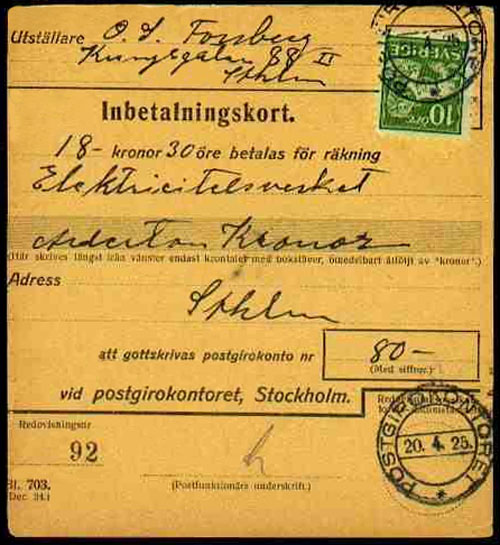 Utställare O. L. Forsberg
Kungsgatan 88 II
Sthlm
SVERIGE
10
Inbetalningskort.
18- kronor 30 öre betalas för räkning
Elektricitetsverket
Aderton Kronor
(Här skrives längst från vänster endast krontalet med bokstäver, omedelbart åtföljt av "kronor".)
Adress
Sthlm
att gottskrivas postgirokonto nr 80-
(Med siffror.)
vid postgirokontoret, Stockholm.
Redovisningsnr
92
POSTGIROKONTORET
20. 4. 25.
Bl. 703.
(Dec. 24.)
(Postfunktionärs underskrift.)